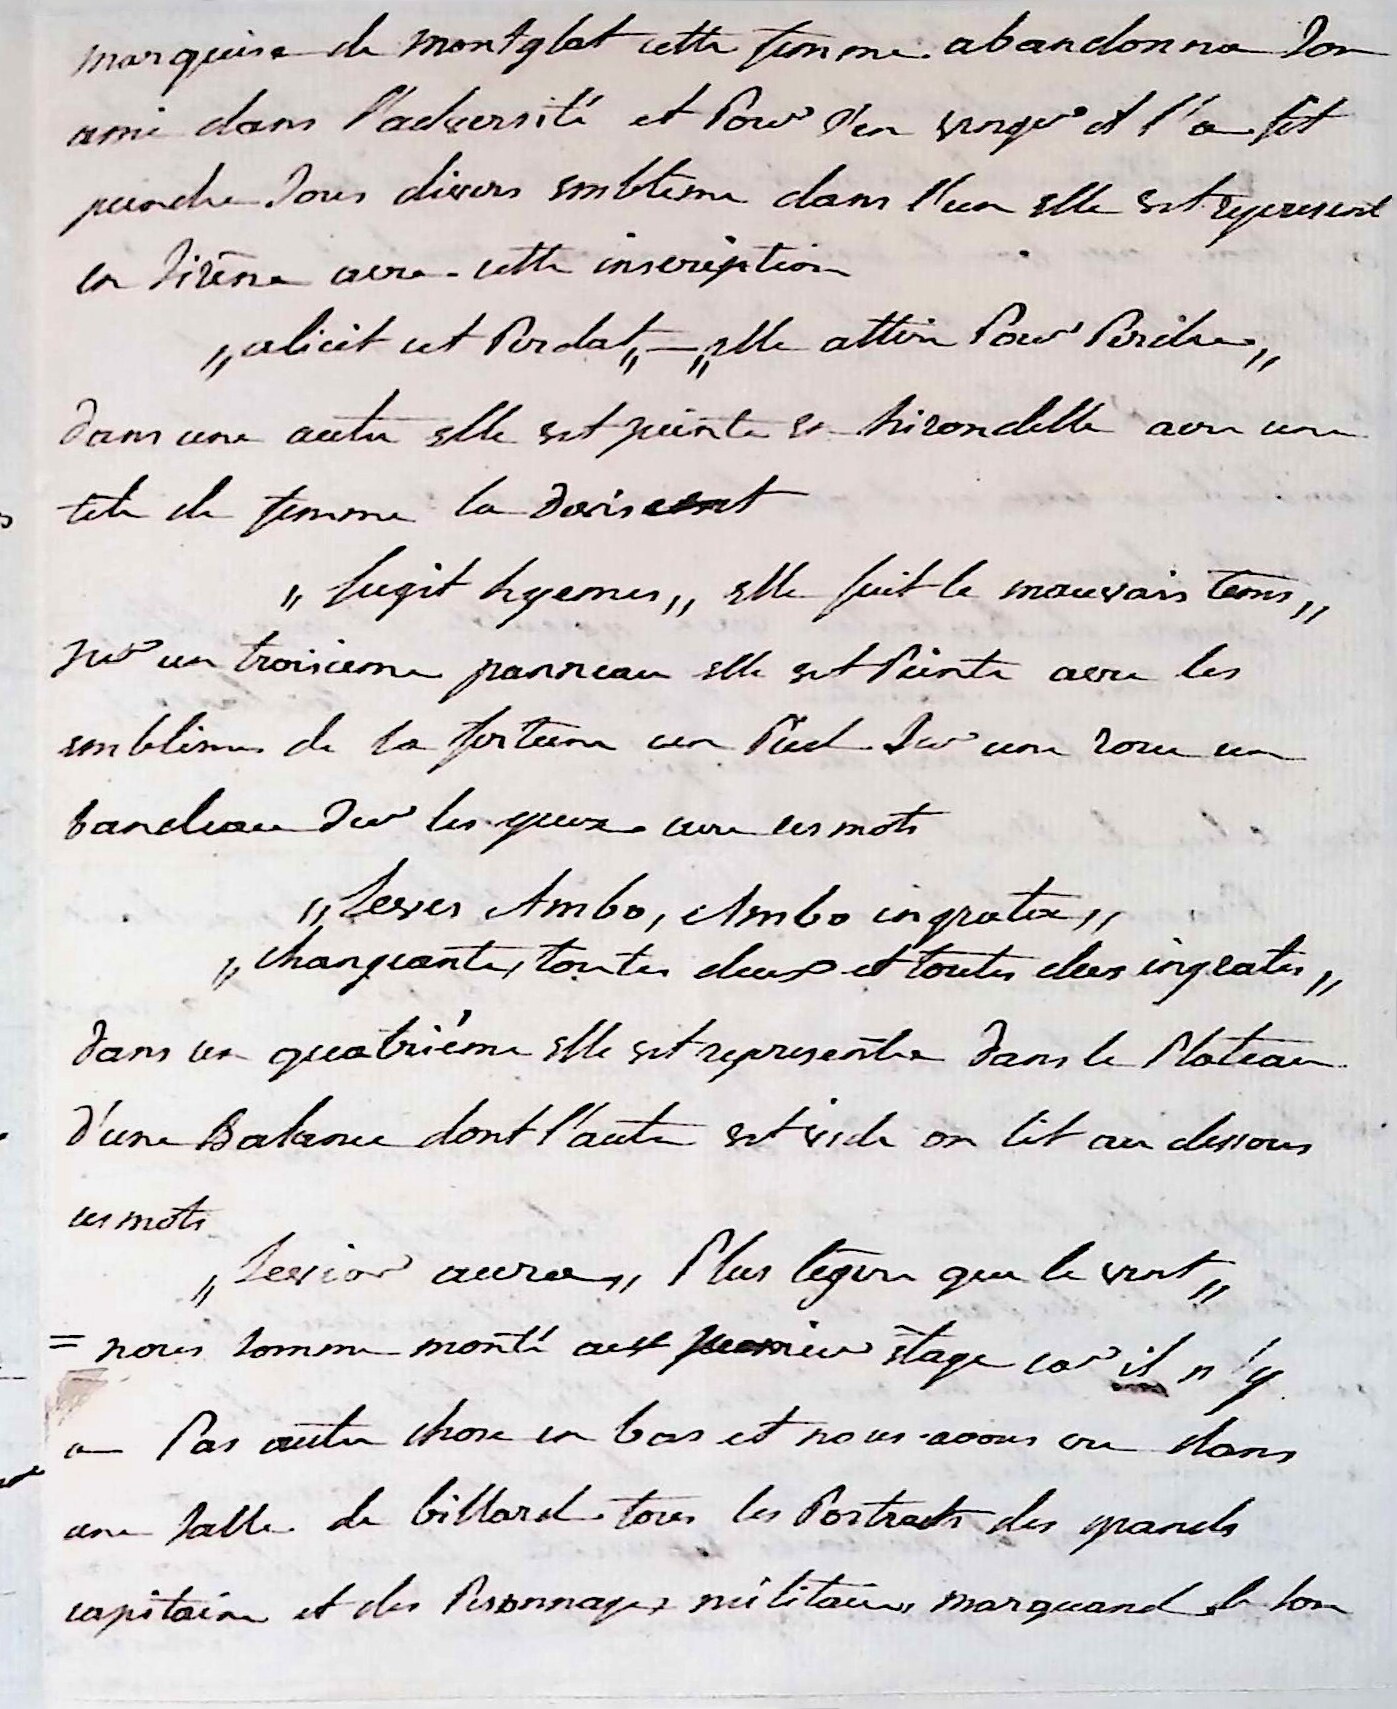 marquise de montglat cette femme abandonna son
ami dans l'adversité et Pour s'en venger il l'a fit
peindre sous divers emblème dans l'un elle est represent
en sirène avec cette inscription
„alicit ut Perdat„ — „elle attire Pour Perdre„
dans une autre elle est peinte en hirondelle avec une
tete de femme la devise est
„fugit hyemes„ elle fuit le mauvais tems„
sur un troisieme panneau elle est Peinte avec les
emblèmes de la fortune un Pied sur une roue un
bandeau sur les yeux avec ces mots
„Leves Ambo, Ambo ingratæ„
„changeantes, toutes deux et toutes deux ingrates„
dans un quatriéme elle est representée dans le Plateau
d'une Balance dont l'autre est vide on lit au dessous
ces mots
„Levior aura„ Plus légere que le vent„
= nous somme monté au premier étage car il n'y
a Pas autre chose en bas et nous avons vu dans
une salle de billard tous les Portraits des grands
capitaine et des Personnages militaires marquand de son